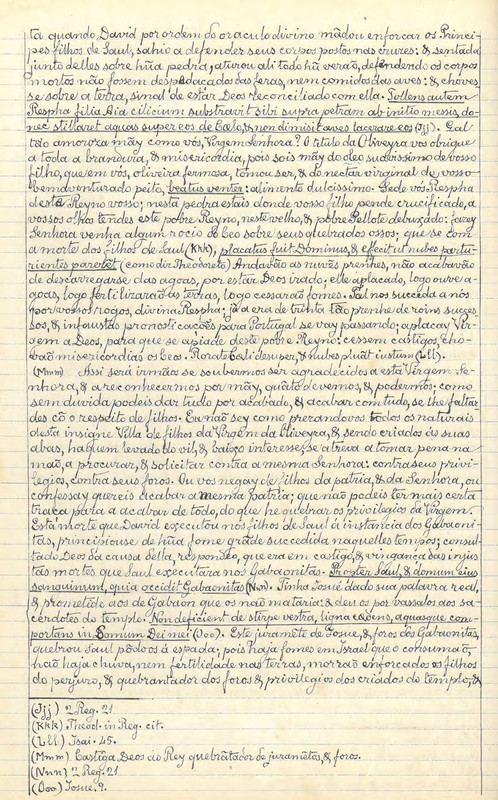 tá quando David por ordem do oraculo divino mãdou enforcar os Princi-
pes filhos de Saul, sahio a defender seus corpos postos nas cruzes: & sentada
junto delles sobre hũa pedra, aturou ali todo hũ verão, defendendo os corpos
mortos não fossem despedaçados das feras, nem comidos das aves: & choves-
se sobre a terra, sinal de estar Deos reconciliado com ella. Tollens autem
Respha filia Aia cilicium substravit sibi supra petram ab initio messis, do-
nec stillaret aquas super eos de Cælo, & non dimisit aves lacerare eos (Jjj). E al
tão amoroza mãy como vós, Virgem Senhora? O titulo da Oliveyra vos obrigue
a toda a brandura, & misericordia, pois sois mãy do oleo suavissimo de vosso
filho, que em vós, oliveira fermosa, tomou ser, & do nectar virginal de vosso
bemaventurado peito, beatus venter: alimento dulcissimo. Sede vós Respha
desta Reyno vosso; nesta pedra estais donde vosso filho pende crucificado, a
vossos olhos tendes este pobre Reyno, neste velho, & pobre Pellote debruçado: fazey
Senhora venha algum rocio do Ceo sobre seus quebrados ossos; que se com
a morte dos filhos de Saul (Kkk), placatus fuit Dominus, & effecit ut nubes partu-
rientes pareret (como diz Theodoreto) Andavão as nuvẽs prenhes, não acabavão
de descarregarse das agoas, por estar Deos irado; elle aplacado, logo ouve a-
goas, logo fertilizarão as terras, logo cessarão fomes. Tal nos succeda a nós
por vossos rogos, divina Respha; já a era de trinta tão prenhe de roins succes-
sos, & infaustas pronosticacções para Portugal se vay passando; aplacay Vir-
gem a Deos, para que se apiade deste pobre Reyno: cessem castigos, cho-
vão misericordias os Ceos. Rorate Cæli desuper, & nubes pluãt iustum (Lll).
(Mmm) Assi será irmãos se soubermos ser agradecidos a esta Virgem Se-
nhora, & a reconhecermos por mãy, quãto devemos, & podemos; como
sem duvida podeis dar tudo por acabado, & acabar com tudo, se lhe faltar
des cõ o respeito de filhos. Eu não sey como prezandovos todos os naturais
desta insigne Villa de filhos da Virgem da Oliveyra, & sendo criados ás suas
abas, ha quem levado de vil, & baixo interesse, se atreva a tomar pena na
mão, a procurar, & solicitar contra a mesma Senhora: contra seus privi-
legios, contra seus foros. Ou vos negay de filhos da patria, & da Senhora, ou
confessay quereis acabar a mesma patria; que não podeis ter mais certa
traça para a acabar de todo, do que lhe quebrar os privilegios da Virgem.
Esta morte que David executou nos filhos de Saul á instancia dos Gabaoni-
tas, principiouse de hũa fome grãde succedida naquelles tempos; consul-
tado Deos da causa della, respondeo, que era em castigo, & vingança das injus-
tas mortes que Saul executara nos Gabaonitas. Propter Saul, & domum eius
sanguinum, quia occidit Gabaonitas (Nnn). Tinha Josué dado sua palavra real,
& prometido aos de Gabaon que os não mataria: & deu os por vassalos aos sa-
cerdotes do templo. Non deficiet de stirpe vestra, ligna cædens, aquasque com-
portans in Domum Dei mei (Ooo). Este juramẽto de Josue, & foros dos Gabaonitas,
quebrou Saul põdo os á espada; pois haja fomes em Israel que o consumão,
não haja chuva, nem fertilidade nas terras, morrão enforcados os filhos
do perjuro, & quebrantador dos foros & privilegios dos criados do templo, &
(Jjj) 2 Reg. 21
(Kkk) Theod. in Reg. cit.
(Lll) Isai. 45.
(Mmm) Castiga Deos ao Rey quebrãtador de juramẽtos, & foros.
(Nnn) 2 Reg. 21
(Ooo) Iosue. 9.